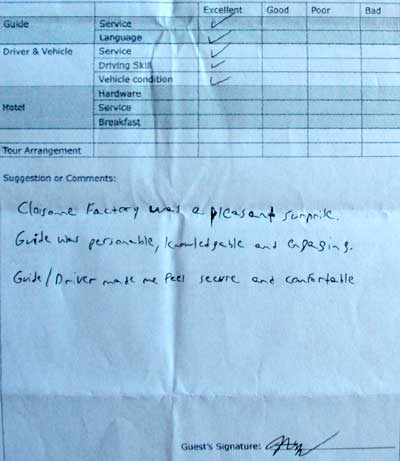 Excellent Good Poor Bad
Guide Service ✓
Language ✓
Driver & Vehicle Service ✓
Driving Skill ✓
Vehicle condition ✓
Hardware
Hotel Service
Breakfast
Tour Arrangement
Suggestion or Comments:
Cloisonne Factory was a pleasant surprise.
Guide was personable, knowledgable and engaging.
Guide/Driver made me feel secure and comfortable
Guest's Signature: